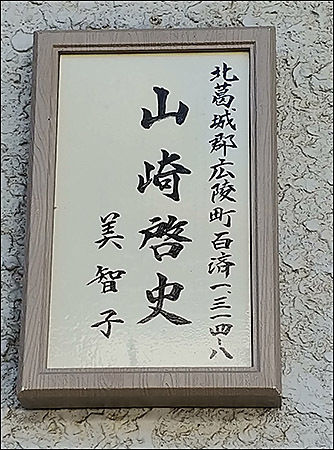 北葛城郡広陵町百済一、三一四、八
山崎啓史
美智子